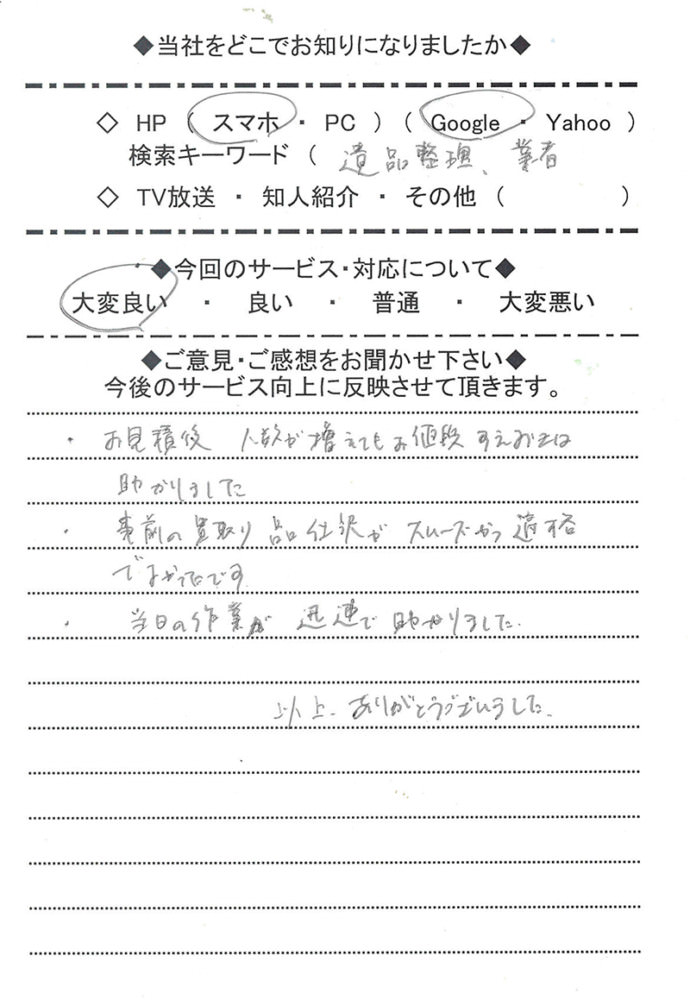 ◆当社をどこでお知りになりましたか◆
◇ HP ( スマホ ・ PC ) ( Google ・ Yahoo )
検索キーワード ( 遺品整理、業者
◇ TV放送 ・ 知人紹介 ・ その他 ( )
◆今回のサービス・対応について◆
大変良い ・ 良い ・ 普通 ・ 大変悪い
◆ご意見・ご感想をお聞かせ下さい◆
今後のサービス向上に反映させて頂きます。
・ お見積後 人数が増えてもお値段すえおきは
助かりました
・ 事前の買取り品仕訳がスムーズかつ適格
でよかったです
・ 当日の作業が 迅速で助かりました.
以上. ありがとうございました.